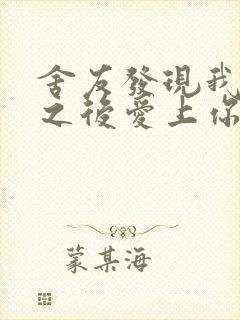 舍友發現我
之後愛上你
蒙某海